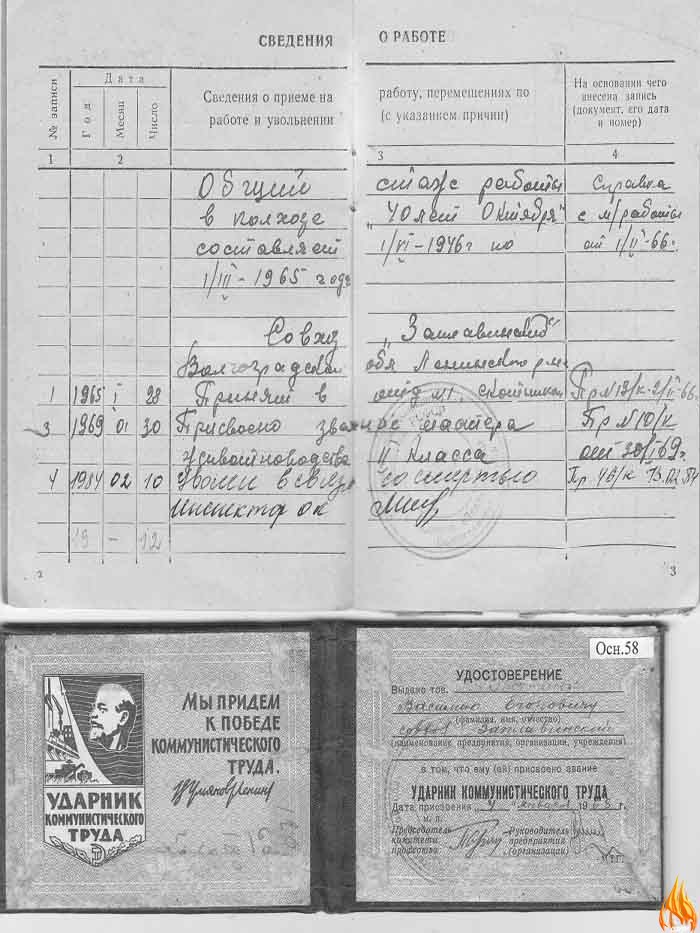 СВЕДЕНИЯ О РАБОТЕ
№ записи
Дата
Год
Месяц
Число
Сведения о приеме на работу, перемещениях по
работе и увольнении (с указанием причин)
На основании чего
внесена запись
(документ, его дата
и номер)
1 2 3 4
Общий стаж работы Справка
в колхозе "40 лет Октября" с м/работы
составляет 1/VI-1946г по от 1/II-66г.
1/III-1965 года
Совхоз "Заплавинский"
Волгоградской обл Ленинского р-на
1 1965 I 28 Принят в отд №1. скотником Пр №13/к-2/II-66г
3 1969 01 30 Присвоено звание мастера Пр №10/к
животноводства II класса от 30/I69г.
4 1984 02 10 Уволен в связи со смертью Пр 46/к 13.02.84
Инспектор ок
19 - 12
2
3
МЫ ПРИДЕМ
К ПОБЕДЕ
КОММУНИСТИЧЕСКОГО
ТРУДА.
В Ульянов (Ленин)
УДАРНИК
КОММУНИСТИЧЕСКОГО
ТРУДА
Осн.58
УДОСТОВЕРЕНИЕ
Выдано тов.
Василию Егоровичу
(фамилия, имя, отчество)
совхоз Заплавинский
(наименование предприятия, организации, учреждения)
в том, что ему (ей) присвоено звание
УДАРНИК КОММУНИСТИЧЕСКОГО ТРУДА
Дата присвоения января 19 г.
М. П.
Председатель
комитета
профсоюза
Руководитель
предприятия
(организации)